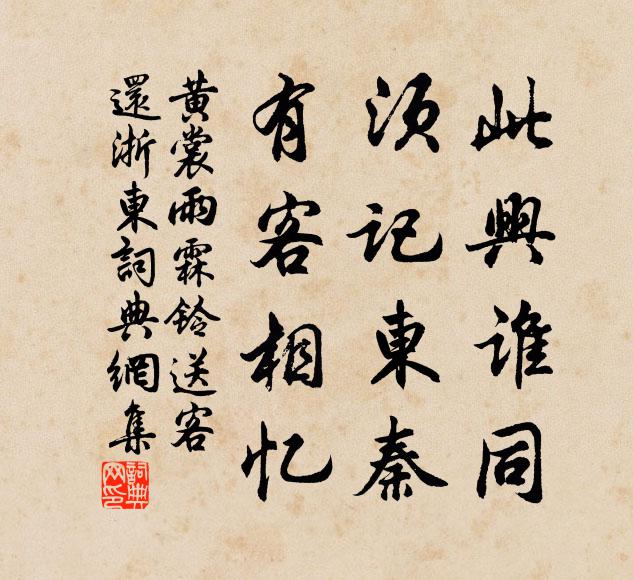 此興誰同
須記東秦
有客相忆
黃裳雨霖鈴送客
還浙東詞典網集
詞典网印